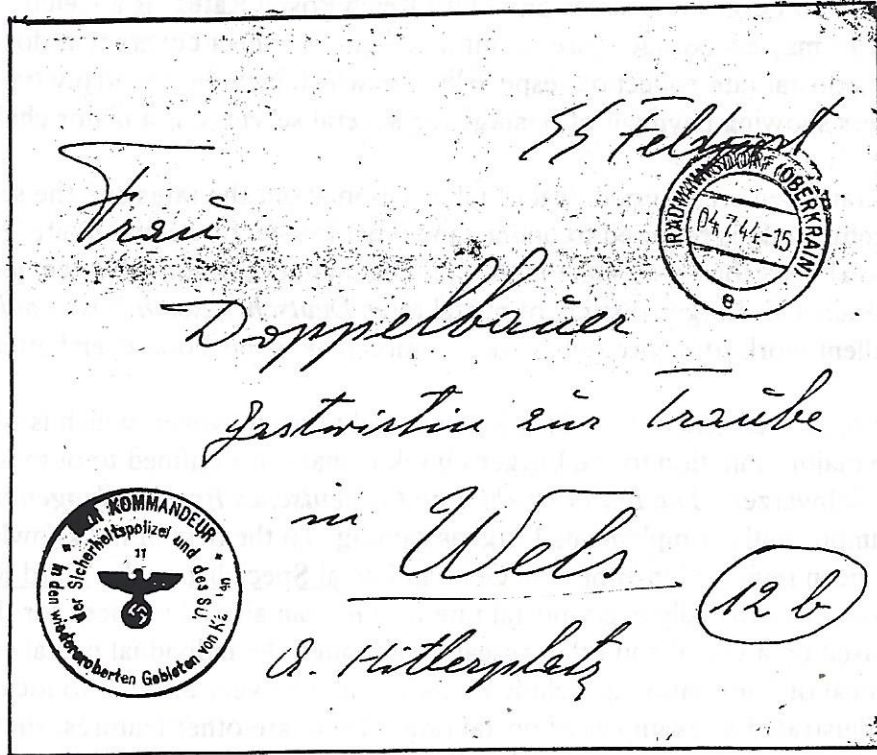 SS Feldpost
Frau
RADMANNSDORF (OBERKRAIN)
04.7.44.-15
e
Doppelbauer
Gastwirtin zur Traube
in Wels
12 b
A. Hitlerplatz
KOMMANDEUR
der Sicherheitspolizei und des SD
11
in den wiedereroberten Gebieten von